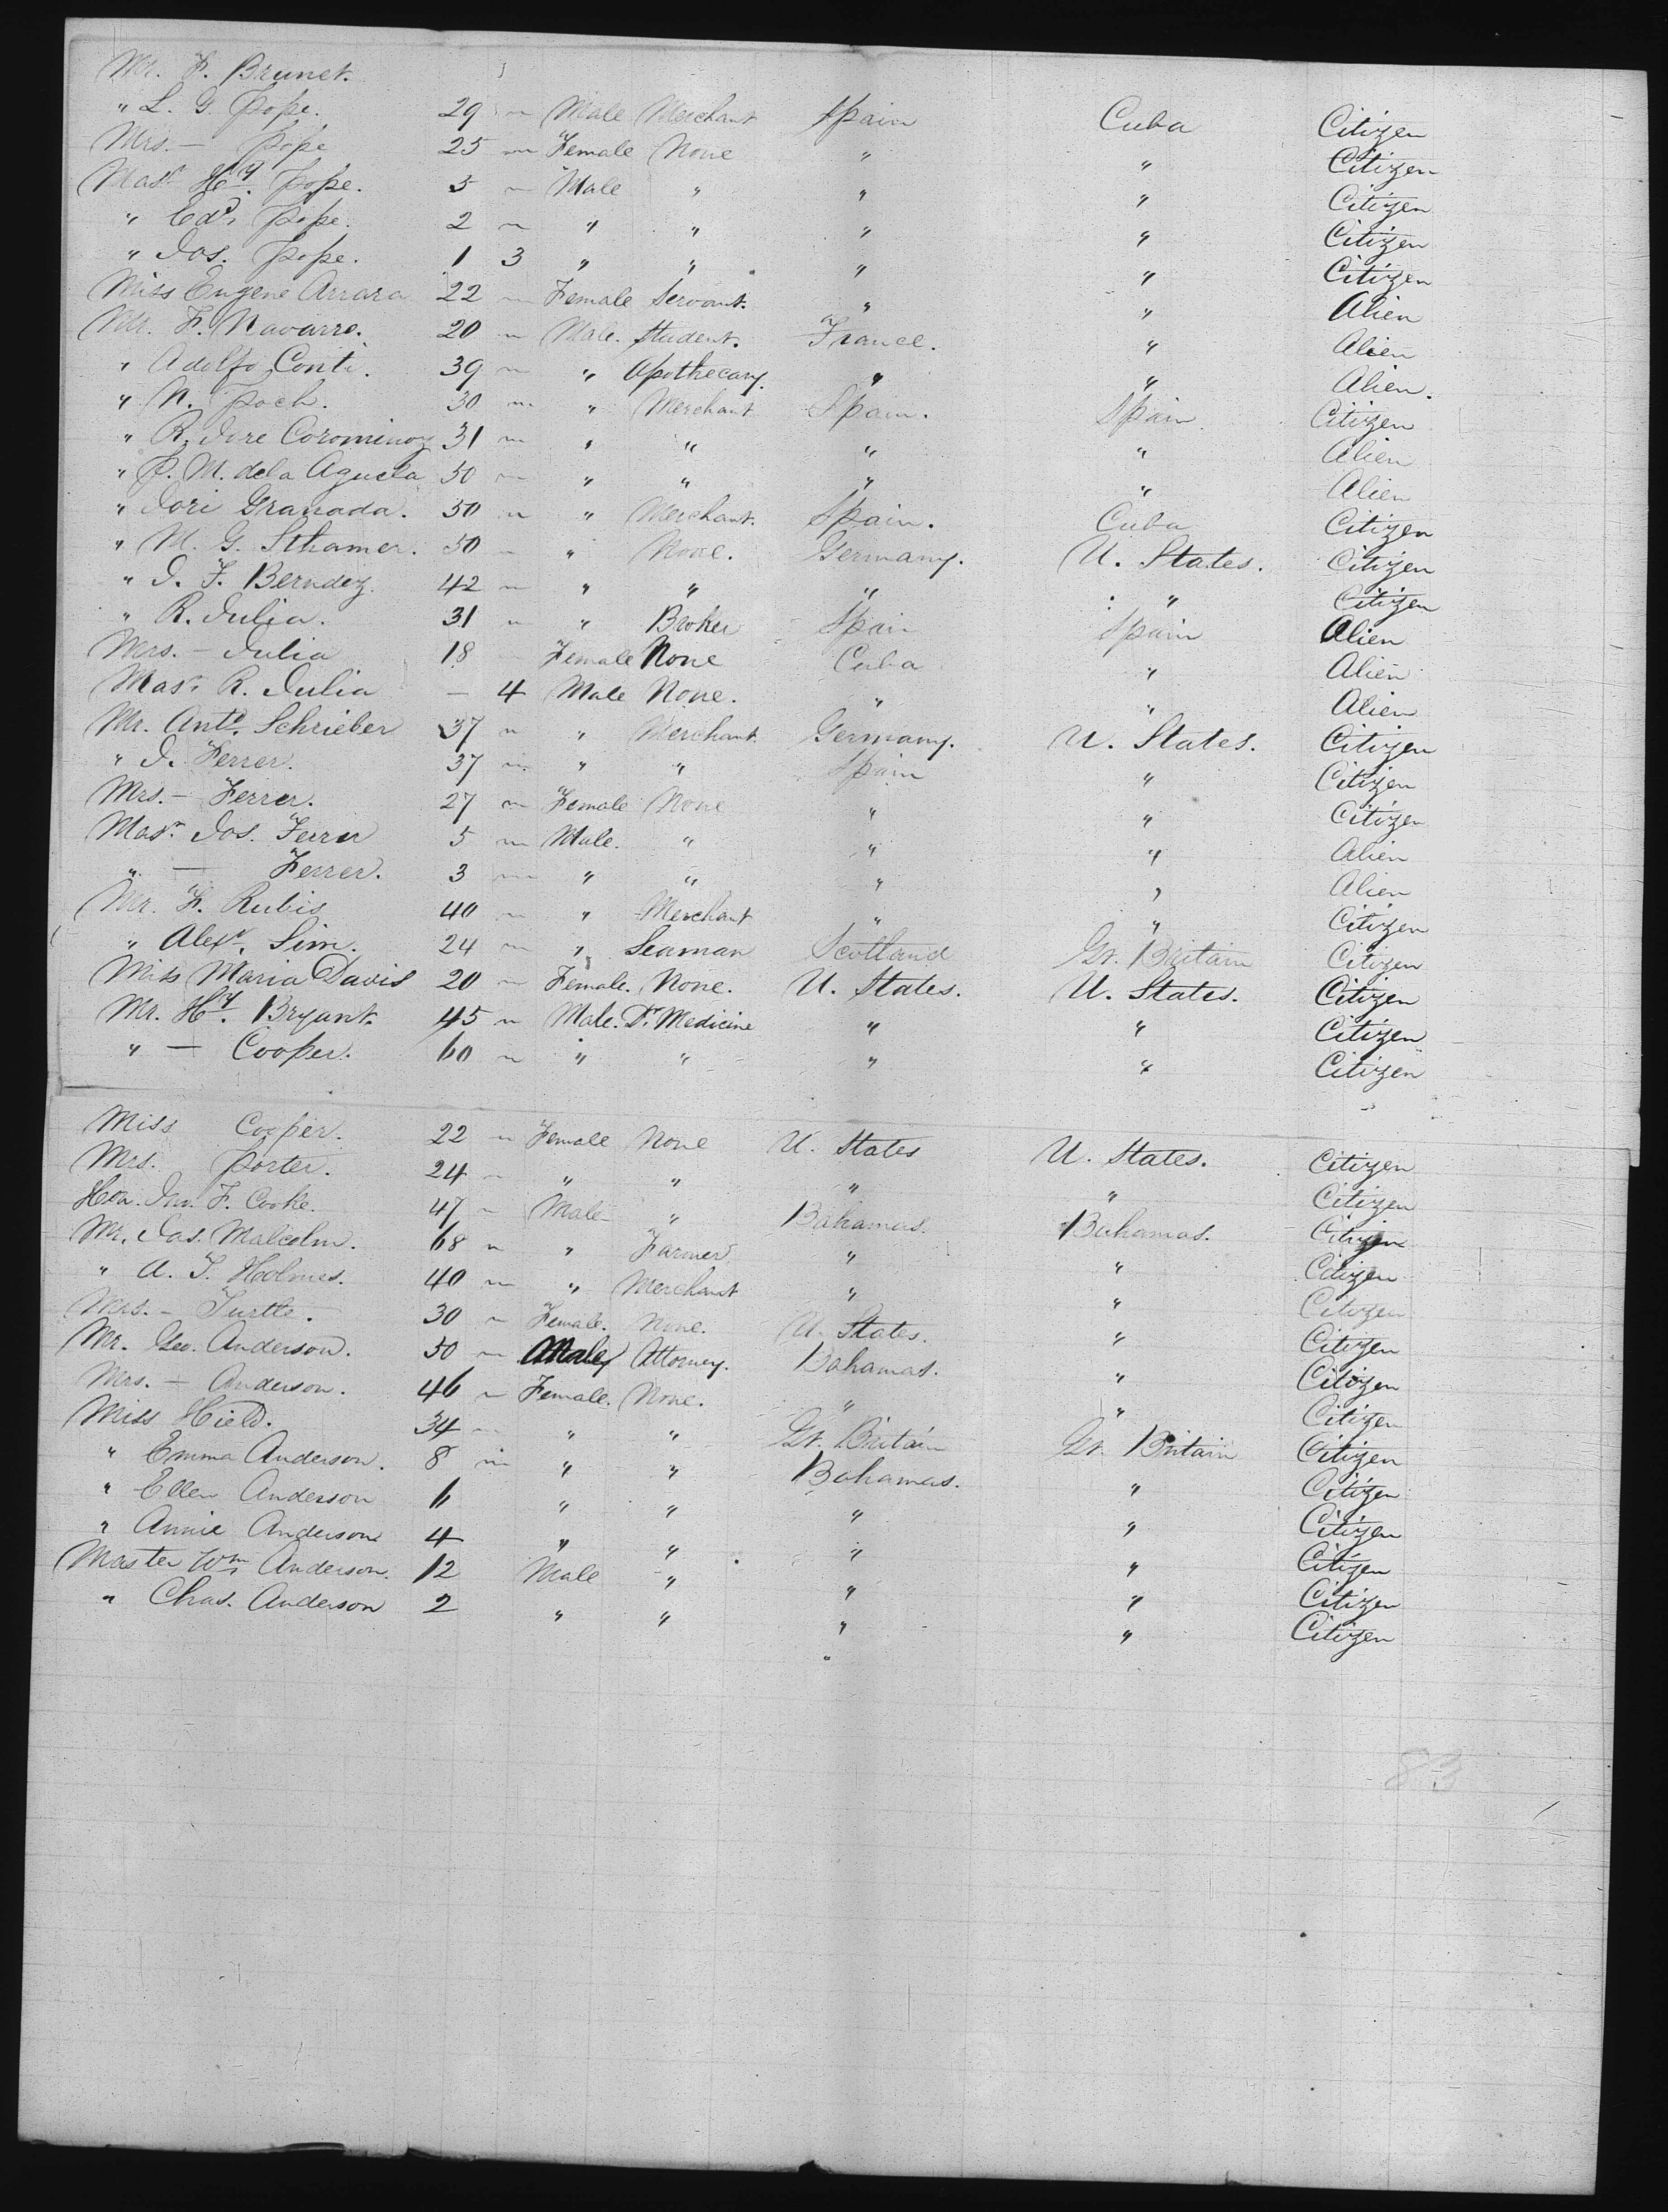 Mr. F. Brunet.
" L. G. Pope. 29 " Male Merchant Spain Cuba Citizen
Mrs. — Pope 25 " Female None " " Citizen
Masr. Hy. Pope. 5 " Male " " " Citizen
" Edd. Pope. 2 " " " " " Citizen
" Jos. Pope. 1 3 " " " " Citizen
Miss Eugene Arrara 22 " Female Servant. " " Alien
Mr. F. Navarro. 20 " Male. Student. France. " Alien
" Adolfo Conti. 39 " " Apothecary. " " Alien.
" N. Poch. 30 " " Merchant Spain. Spain. Citizen
" R. Jore Corominoz 31 " " " " " Alien
" P. M. de la Aguela 50 " " " " " Alien
" Jori Granada. 50 " " Merchant. Spain. Cuba Citizen
" M. G. Sthamer. 50 " " None. Germany. U. States. Citizen
" J. F. Berndez. 42 " " " " " Citizen
" R. Julia. 31 " " Broker Spain Spain Alien
Mrs. — Julia 18 Female None Cuba " Alien
Masr. R. Julia — 4 Male None. " " Alien
Mr. Anto. Schrieber 37 " " Merchant. Germany. U. States. Citizen
" J. Ferrer. 37 " " " Spain " Citizen
Mrs. — Ferrer. 27 " Female None " " Citizen
Masr. Jos. Ferrer 5 " Male. " " " Alien
" — Ferrer. 3 " " " " " Alien
Mr. F. Rubis 40 " " Merchant " " Citizen
" Alexr. Sim. 24 " " Seaman Scotland Gt. Britain Citizen
Miss Maria Davis 20 " Female. None. U. States. U. States. Citizen
Mr. Hy. Bryant. 45 " Male. Dr. Medicine " " Citizen
" — Cooper. 60 " " " " " Citizen
Miss Cooper. 22 " Female None U. States U. States. Citizen
Mrs. Porter. 24 " " " " " Citizen
Hon. Jno. F. Cooke. 47 " Male " Bahamas. Bahamas. Citizen
Mr. Jas. Malcolm. 68 " " Farmer " " Citizen
" A. T. Holmes. 40 " " Merchant " " Citizen
Mrs. — Turtle. 30 " Female. None. U. States. " Citizen
Mr. Geo. Anderson. 50 " Male Attorney. Bahamas. " Citizen
Mrs. — Anderson. 46 " Female. None. " " Citizen
Miss Hield. 34 " " " Gt. Britain Gt. Britain Citizen
" Emma Anderson. 8 " " " Bahamas. " Citizen
" Ellen Anderson 6 " " " " Citizen
" Annie Anderson 4 " " " " Citizen
Master Wm. Anderson. 12 Male " " " Citizen
" Chas. Anderson 2 " " " " Citizen
83